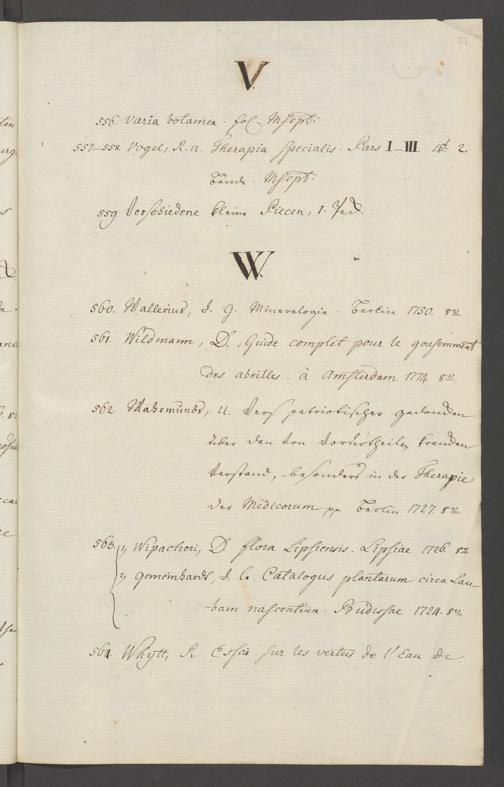 V.
556. Varia botanica. fol. Mscpt.
557-558. Vogel, R. A. Therapia specialis. Pars I-III. 4t 2
Bände. Mscpt.
559 Verschiedene kleine Piecen, 1.
W.
560. Wallerius, J. G. Mineralogie. Berlin 1750. 8vo
561. Wildmann, D. Guide complet pour le gouvernement
des abeilles. à Amsterdam 1774. 8vo
562 Wahrmundt, U. Vers. patriotischer gedanken
über den von Vorurtheilen kranken
Verstand, besonders in der Therapie
der Medicorum pp Berlin 1727. 8vo
563. 1) Wipacheri, D. flora Lipsiensis. Lipsiae 1726. 8vo
2) Gemeinhardt, J. C. Catalogus plantarum circa Lau-
bam nascentium. Budissae 1724. 8vo
564 Whytt, R. Essai sur les vertus de l'Eau de